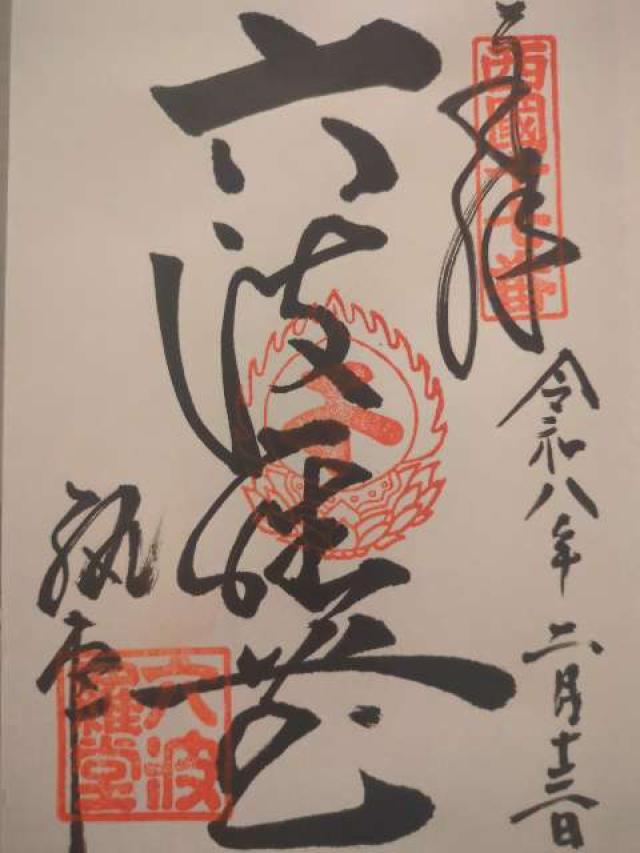 西國十七番
奉拝
令和八年二月十三日
六波羅堂
執事
六波羅堂